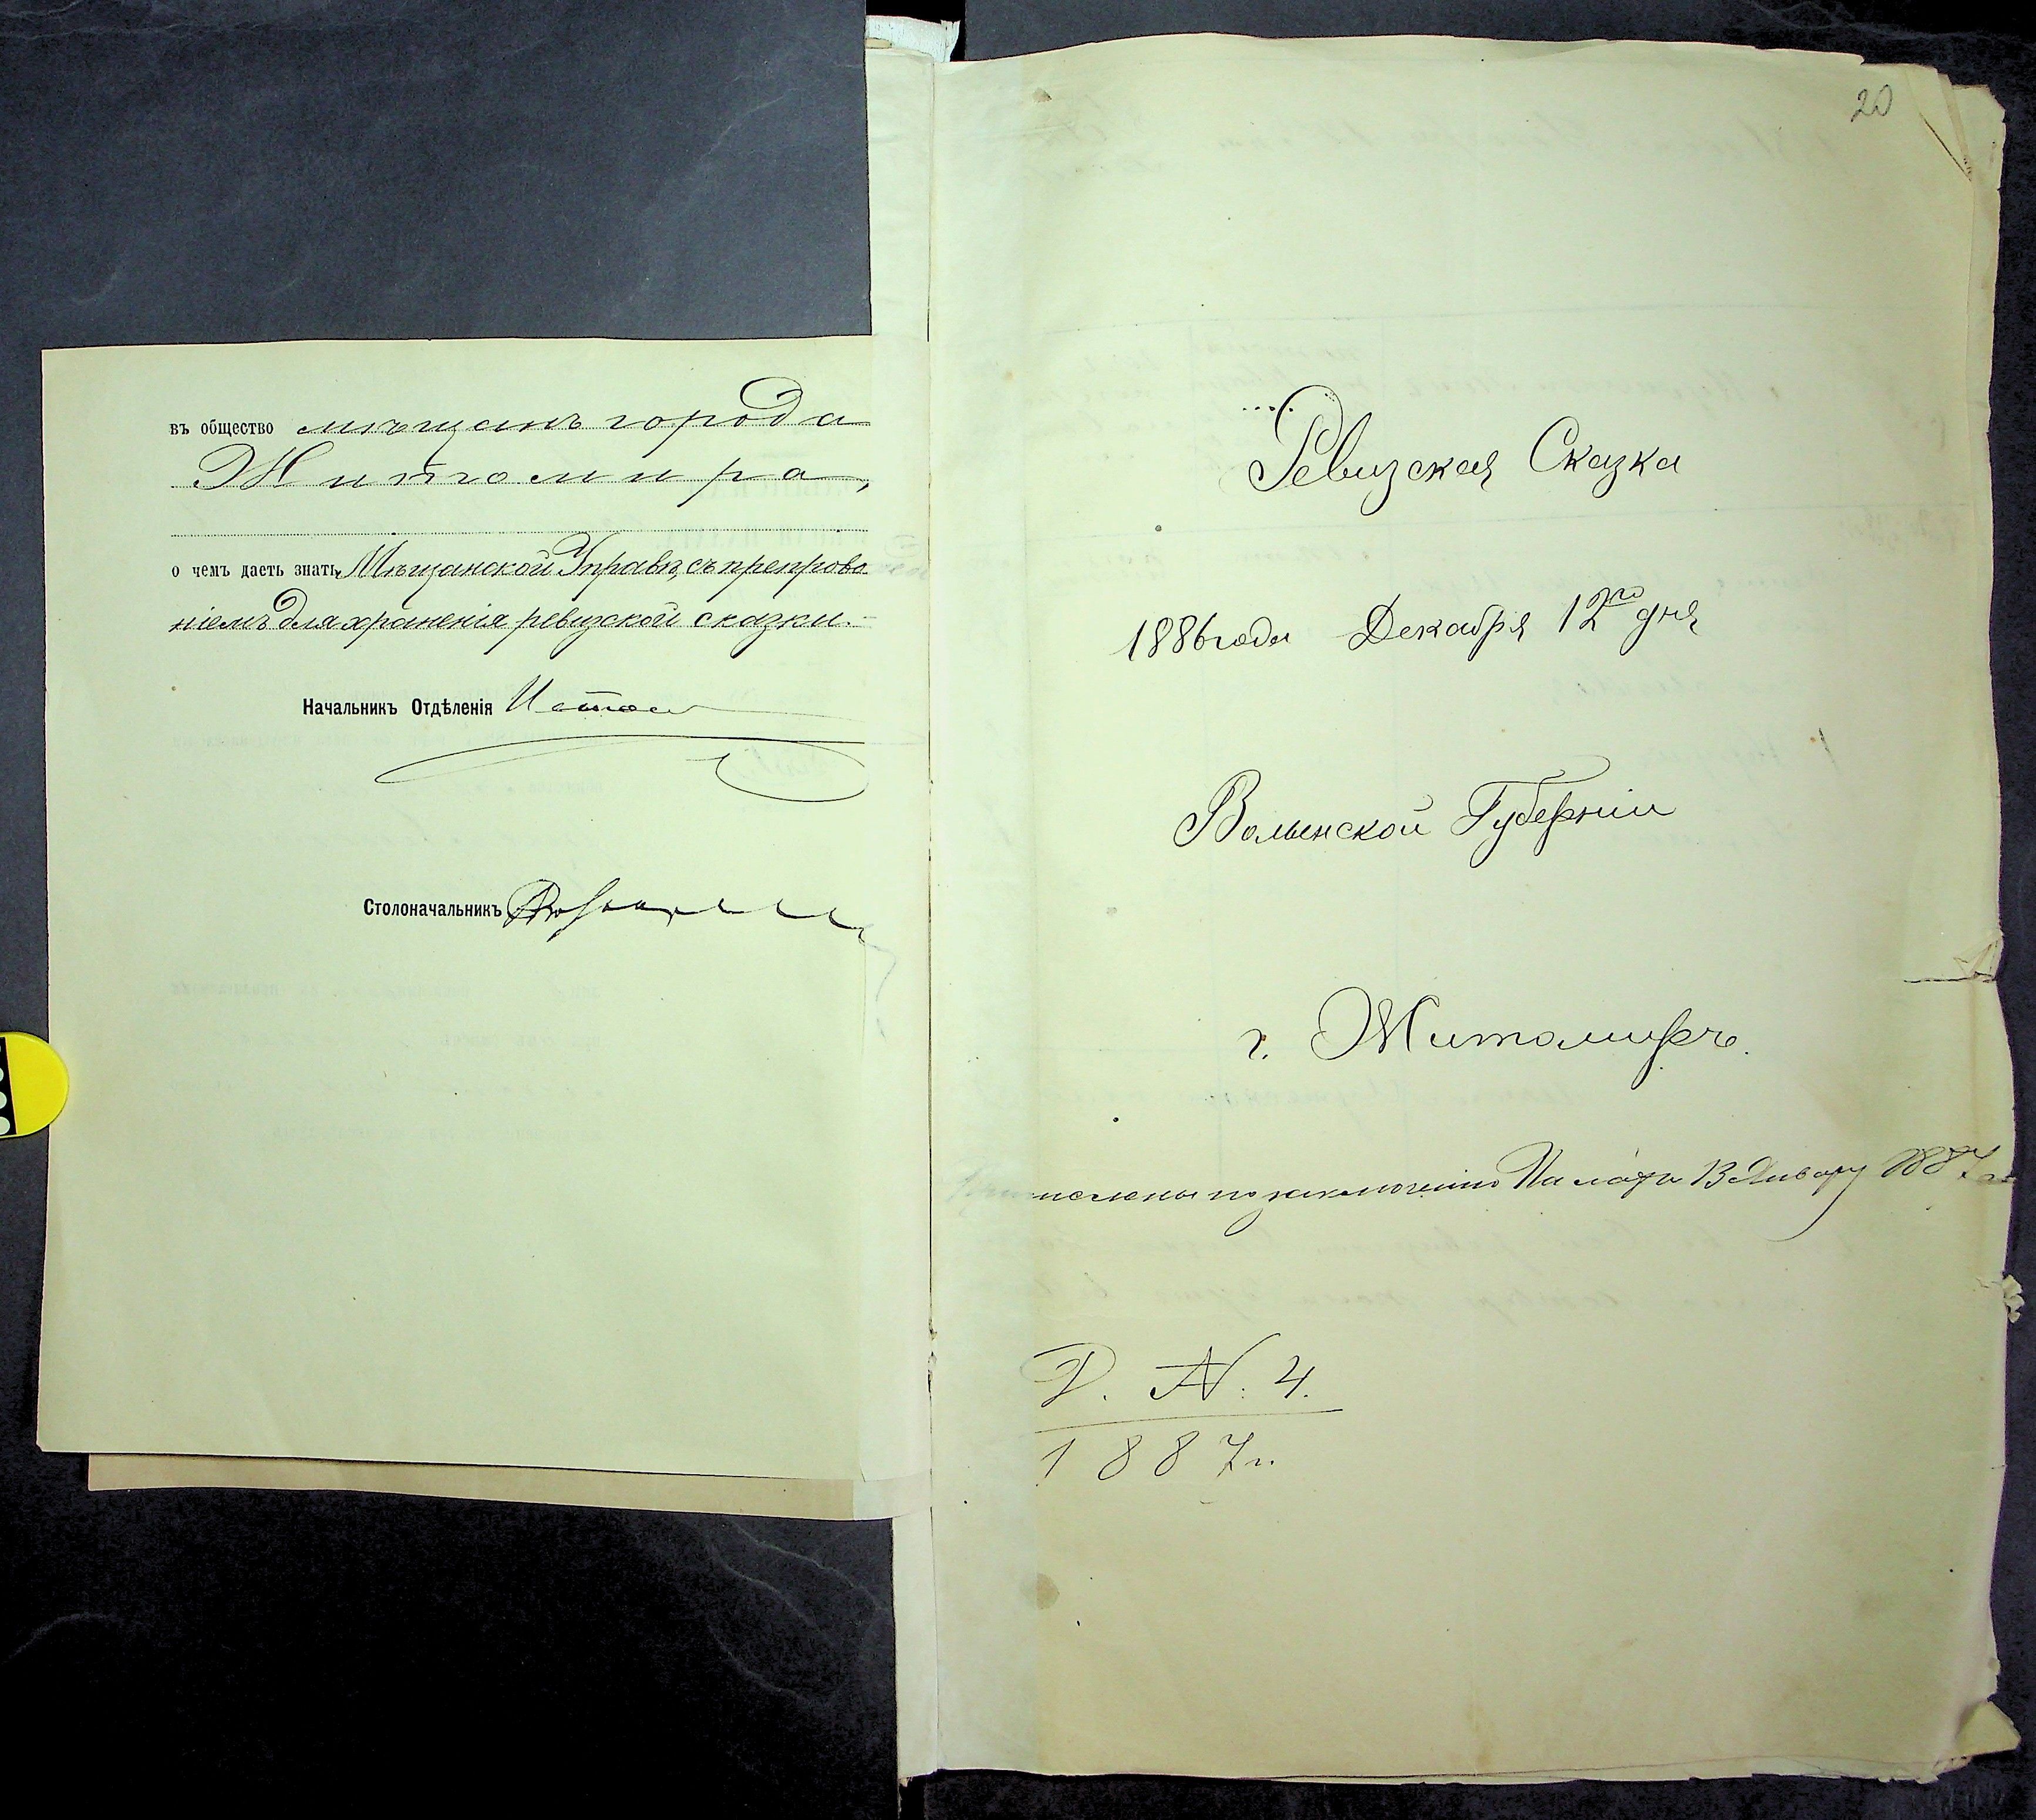 въ общество мѣщанъ города
Житомира,
о чемъ даетъ знать Мѣщанской Управѣ, съ препрово
ніемъ для храненія ревизской сказки.
Начальникъ Отдѣленія
Столоначальникъ
20
Ревизская Сказка
1886 года Декабря 12го дня
Волынской Губерніи
г. Житомиръ.
числены по заключенію Палаты 13 Января 1887 г.
Д. №: 4.
1887 г.